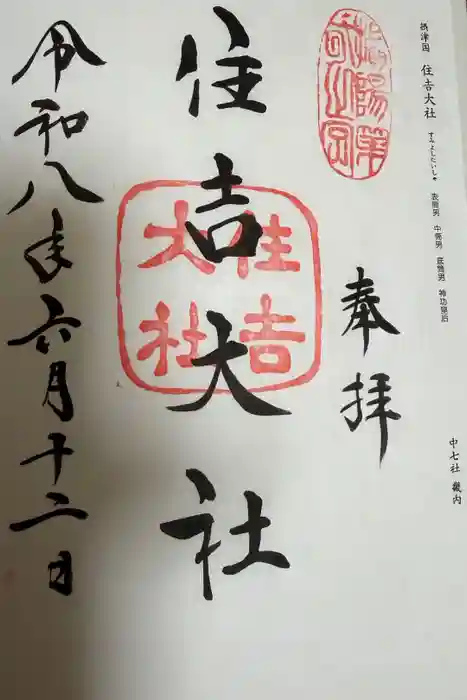 摂津国 住吉大社 すみよしたいしゃ 表筒男 中筒男 底筒男 神功皇后
中七社 畿内
奉拝
住吉大社
住吉
大社
令和八年六月十二日